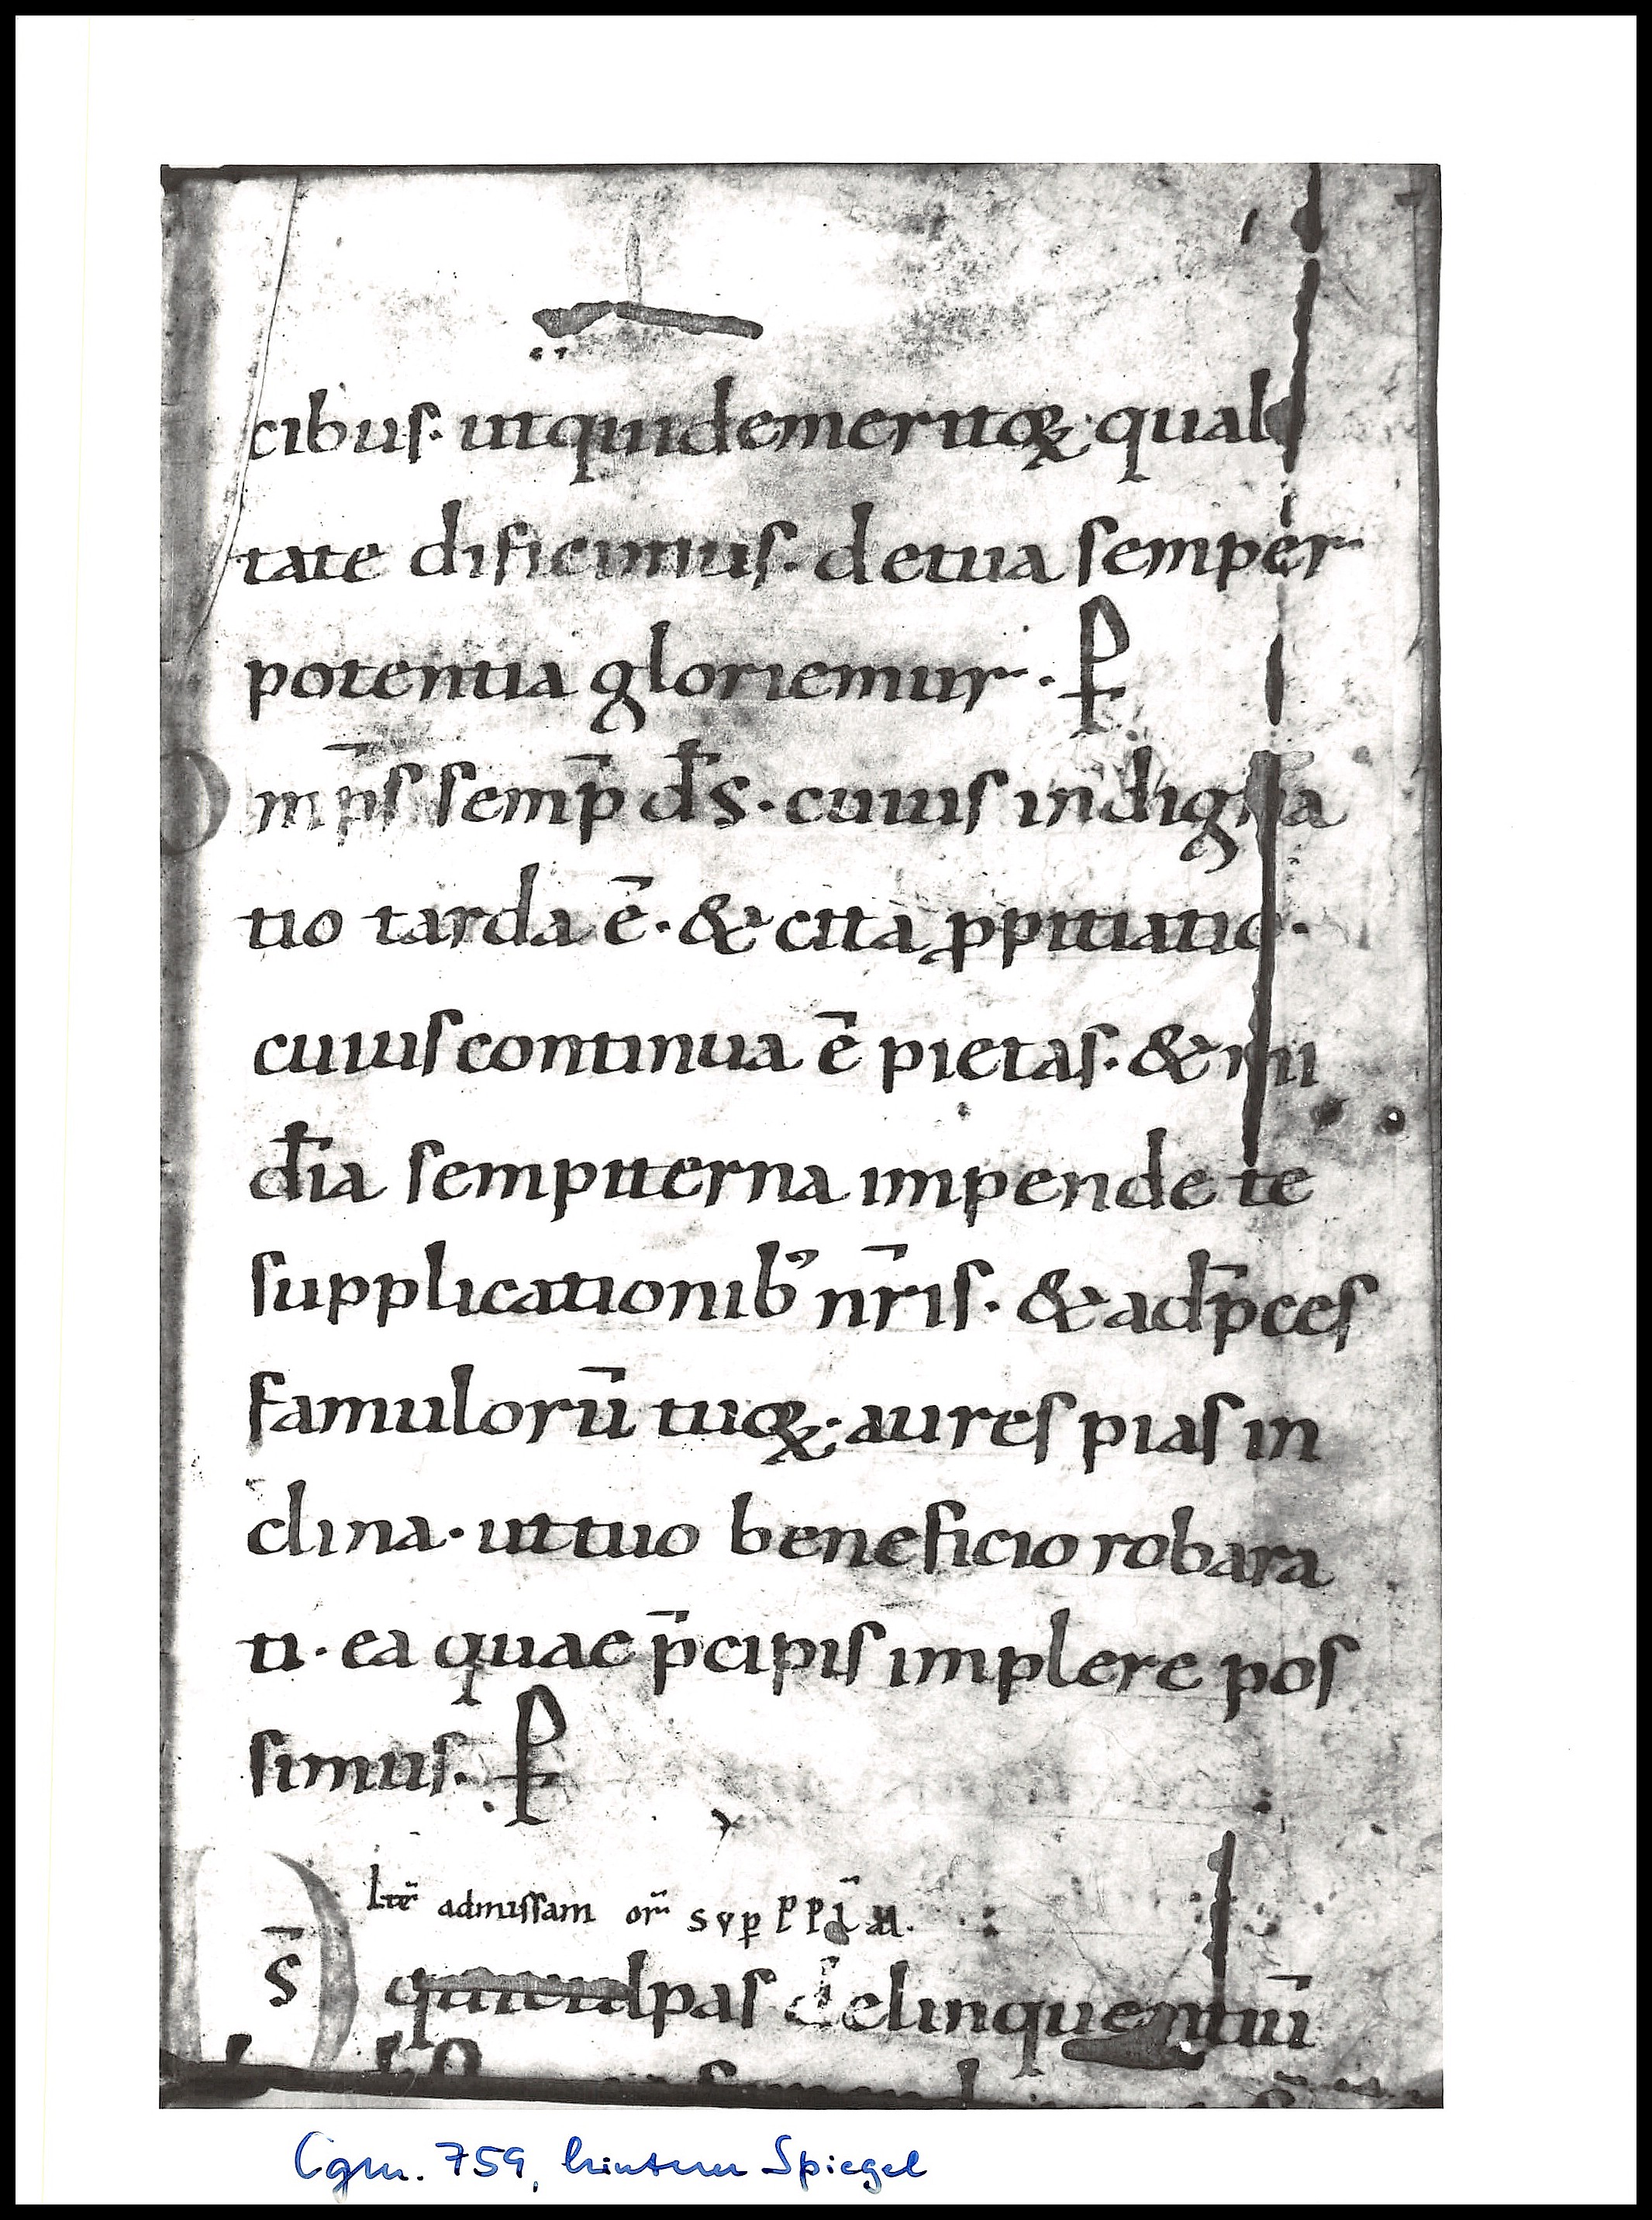 cibus· utquidemeritoꝝ· quali
tate disficimus· detua semper
potentia gloriemur· P̵
Omp̄s semp̄ d̄s· cuius indigna
tio tarda ē· & cita ꝓpitiatio·
cuius continua ē pietas· & mi
d̄ia sempiterna impende te
supplicationib' nr̄is· & ad p̄ces
famulorū tuoꝝ· aures pias in
clina· ut tuo beneficio robara
ti· ea quae p̄cipis implere pos
simus· P̵
admissam
D̄S qui culpas delinquentiū
Cgm. 759, hinterer Spiegel